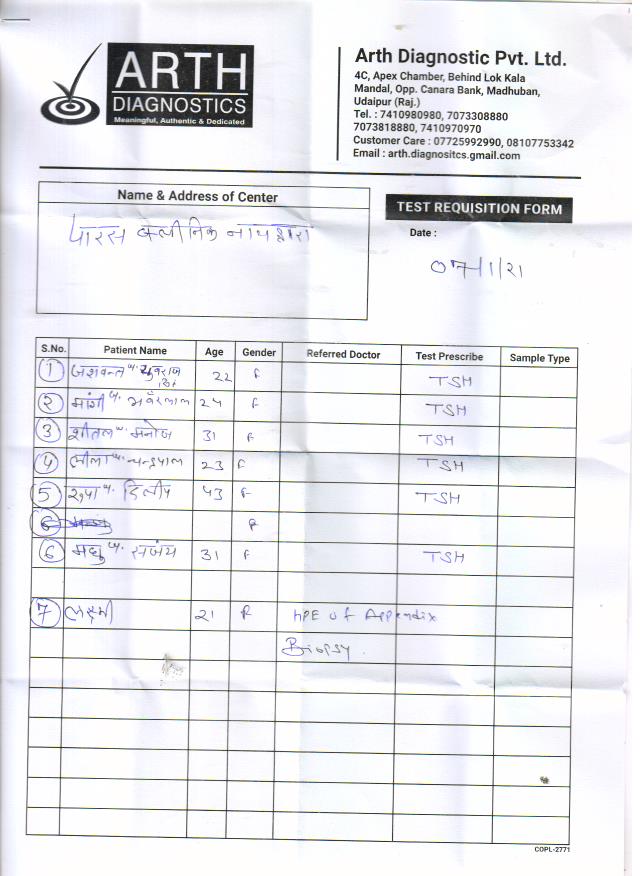 ARTH
DIAGNOSTICS
Meaningful, Authentic & Dedicated
Arth Diagnostic Pvt. Ltd.
4C, Apex Chamber, Behind Lok Kala
Mandal, Opp. Canara Bank, Madhuban,
Udaipur (Raj.)
Tel. : 7410980980, 7073308880
7073818880, 7410970970
Customer Care : 07725992990, 08107753342
Email : arth.diagnositcs.gmail.com
Name & Address of Center
पारस क्लीनिक नाथद्वारा
TEST REQUISITION FORM
Date :
07/1/21
S.No. Patient Name Age Gender Referred Doctor Test Prescribe Sample Type
1 जशवन्त युवराज 22 F TSH
2 मांगी भवँरलाल 24 F TSH
3 शीतल मनोज 31 F TSH
4 लीला चन्द्रपाल 23 F TSH
5 रूपा दिलीप 43 F TSH
6 F
6 मधु संजय 31 F TSH
7 लक्ष्मी 21 F HPE of Appendix
Biopsy.
COPL-2771